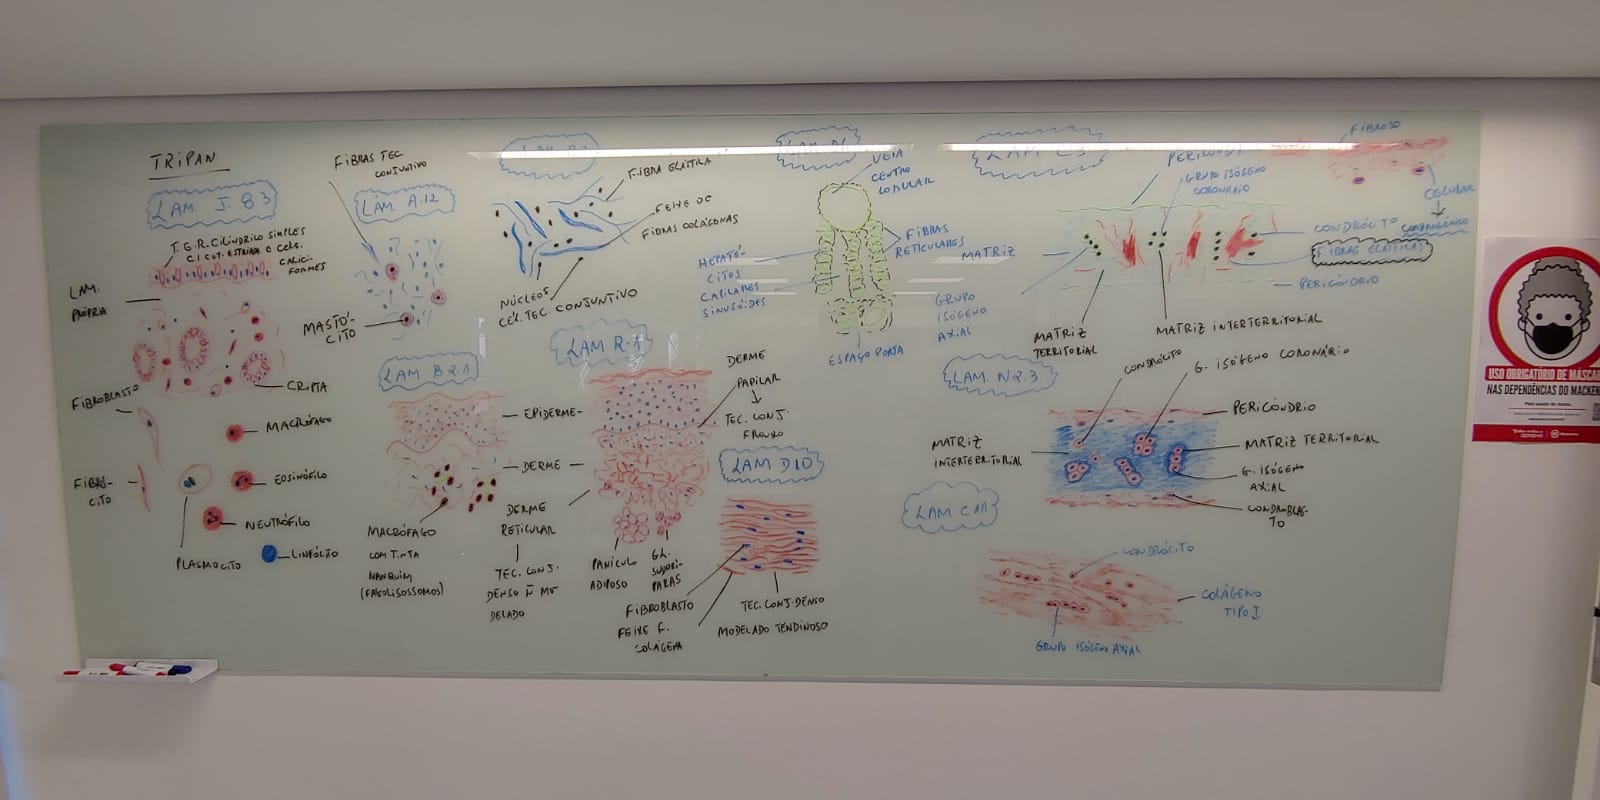 TRIPAN
LAM. J. 8.3
T.E.R. CILÍNDRICO SIMPLES
C/ CUT. ESTRIADA E CELS.
CALICI-
FORMES
LAM.
PRÓPRIA
CRIPTA
FIBROBLASTO
MACRÓFAGO
FIBRÓ-
CITO
EOSINÓFILO
NEUTRÓFILO
PLASMOCITO
LINFÓCITO
FIBRAS TEC
CONJUNTIVO
LÂM. A.12
MASTÓ-
CITO
FIBRA ELÁSTICA
FEIXE DE
FIBRAS COLÁGENAS
NÚCLEOS
CÉL. TEC. CONJUNTIVO
LAM B 2.1
EPIDERME
DERME
MACRÓFAGO
COM TINTA
NANQUIM
(FAGOLISOSSOMOS)
LAM R.1
DERME
PAPILAR
TEC. CONJ.
FROUXO
DERME
RETICULAR
TEC. CONJ.
DENSO Ñ MO
DELADO
PANÍCULO
ADIPOSO
GL.
SUDORÍ-
PARAS
LAM D10
FIBROBLASTO
FEIXE F.
COLÁGENA
TEC. CONJ. DENSO
MODELADO TENDINOSO
VEIA
CENTRO
LOBULAR
FIBRAS
RETICULARES
HEPATÓ-
CITOS
CAPILARES
SINUSÓIDES
ESPAÇO PORTA
GRUPO ISÓGENO
CORONÁRIO
MATRIZ
GRUPO
ISÓGENO
AXIAL
CONDRÓCITO
FIBRAS ELÁSTICAS
PERICÓNDRIO
MATRIZ
TERRITORIAL
MATRIZ INTERTERRITORIAL
FIBROSO
CELULAR
CONDROGÊNICO
LAM. N2.3
CONDRÓCITO
G. ISÓGENO CORONÁRIO
PERICÓNDRIO
MATRIZ
INTERTERRITORIAL
MATRIZ TERRITORIAL
G. ISÓGENO
AXIAL
CONDROBLAS-
TO
LAM C11
CONDRÓCITO
COLÁGENO
TIPO I
GRUPO ISÓGENO AXIAL
USO OBRIGATÓRIO DE MÁSCAR
NAS DEPENDÊNCIAS DO MACKEN